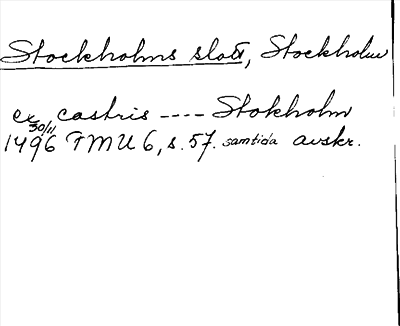 Stockholms slott, Stockholm
ex castris ---- Stokholm
30/11
1496 TMU 6, s. 57. samtida avskr.